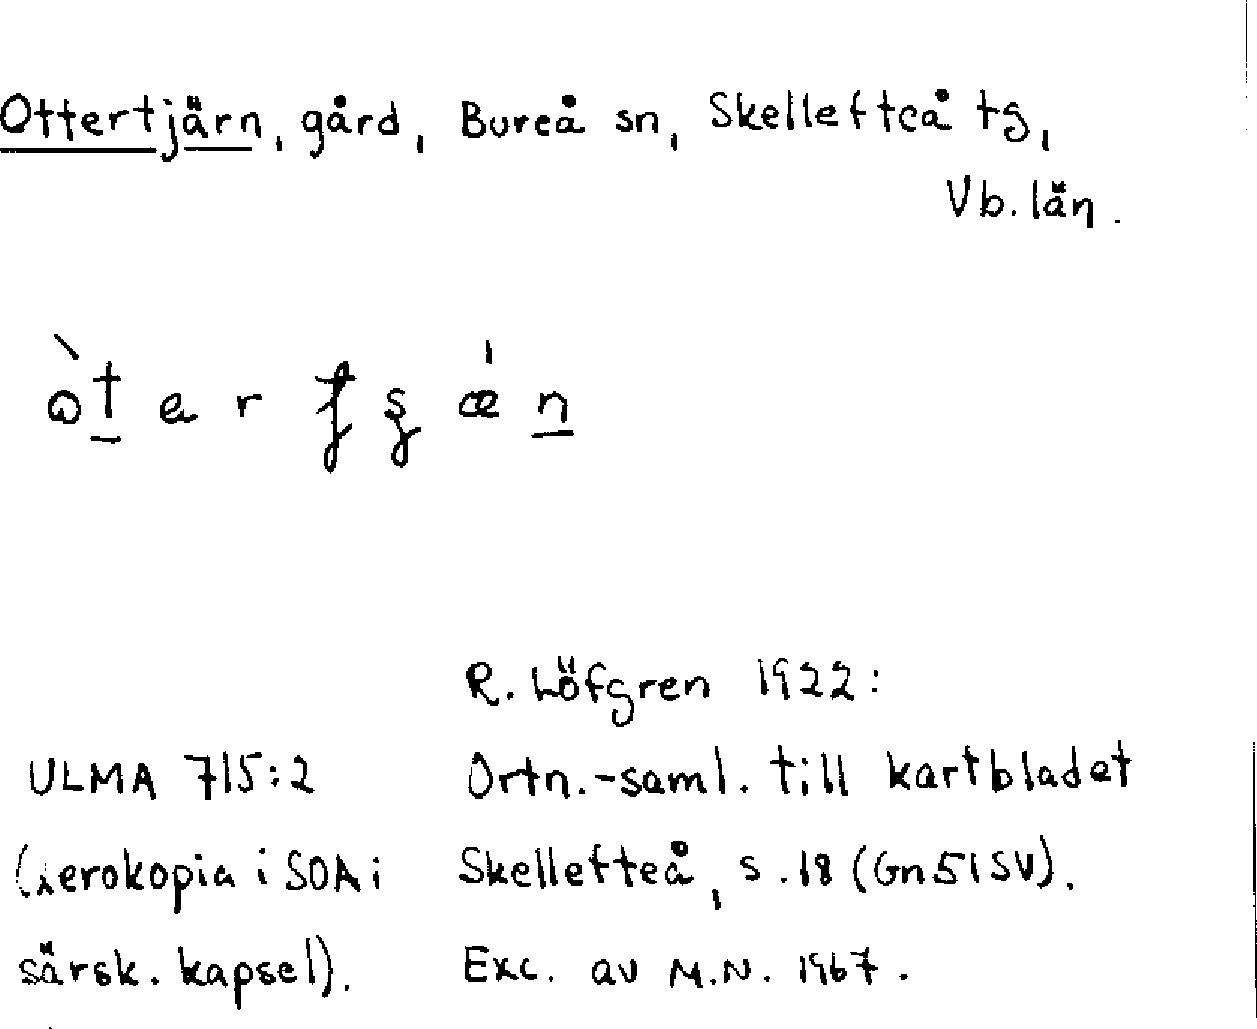 Ottertjärn, gård, Bureå sn, Skellefteå tg,
Vb. län.
R. Löfgren 1922:
ULMA 715:2 Ortn.-saml. till kartbladet
(xerokopia i SOA i Skellefteå, s. 18 (Gn 51 SV).
särsk. kapsel). Exc. av M.N. 1967.